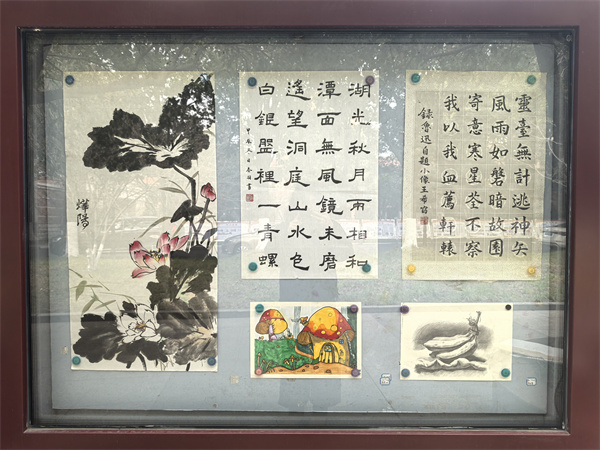 湖光秋月兩相和
潭面無風鏡未磨
遙望洞庭山水色
白銀盤裡一青螺
靈臺無計逃神矢
風雨如磐暗故園
寄意寒星荃不察
我以我血薦軒轅
錄魯迅自題小像王希